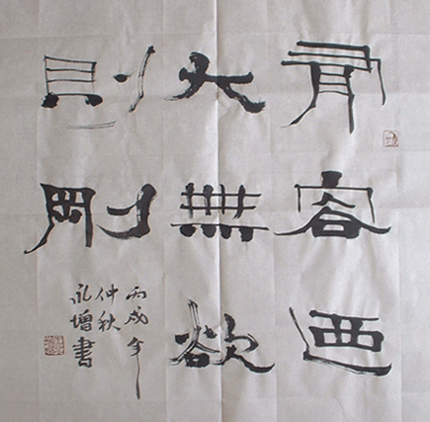 有容迺
大無欲
則剛
丙戌年
仲秋
增書